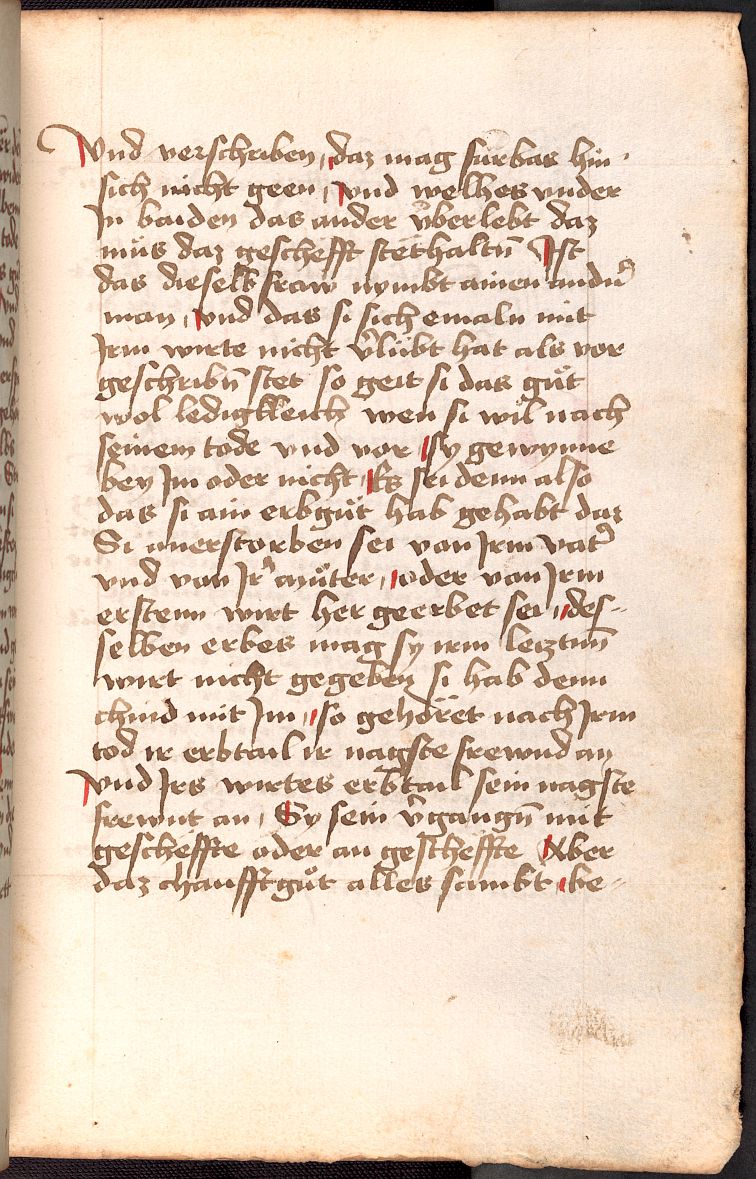 Vnd verschriben, daz mag fürbas hin
sich nicht geen, vnd welhes vnder
In baiden das ander v̈berlebt daz
müs daz geschefft stethaltn̄ Ist
das dieselb fraw nymbt ainen andn̄
man, vnd das si sich emaln mit
Irm wirte nicht v̉lübt hat als vor
geschribn̄ stet so geit si das gůt
wol ledigkleich wen si wil nach
seinem tode vnd vor sy gewynne
bey Im oder nicht, Es sei denn also
das si ain erbgůt hab gehabt daz
Si anerstorben sei von Irm vat̉
vnd von Ir̉ můter, oder von Irm
erstenn wirt her geerbet sei, des-
selben erbes mag sy irm lecztnn̄
wirt nicht gegeben si hab denn
chind mit Im, so gehöret nach Irm
tod ir erbtail ir nagste frewnd an
vnd Irs wirtes erbtail sein nagste
frewnt an, Sy sein v̉gangn̄ mit
gescheffte oder an gescheffte Aber
daz chaufftgůt alles sambt, be-